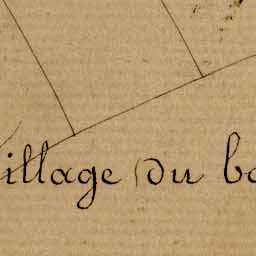 illage du bo